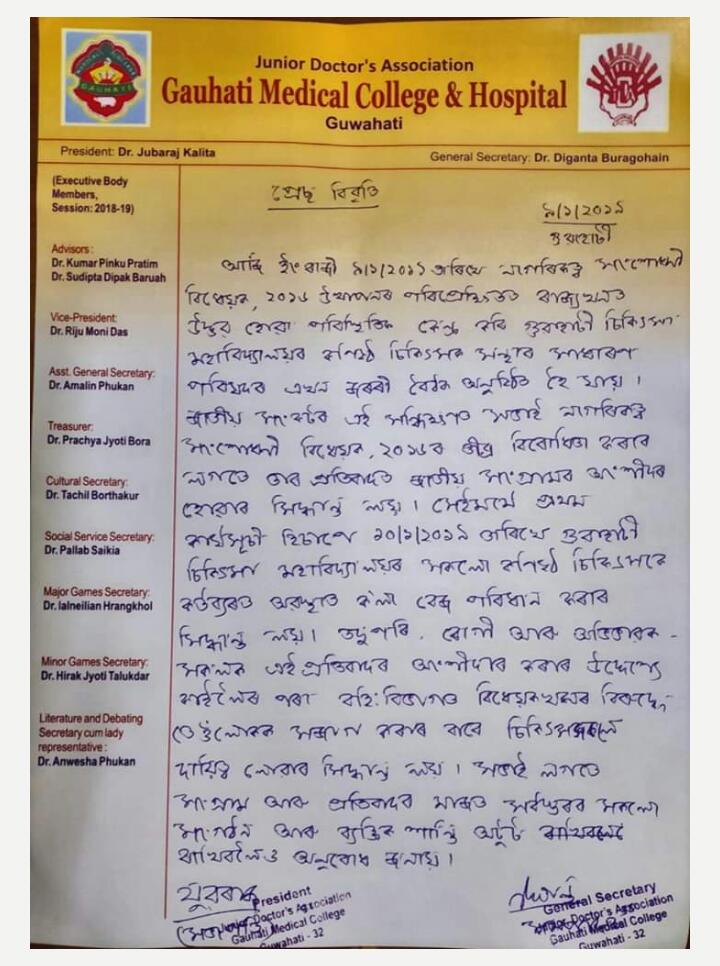 Junior Doctor's Association
Gauhati Medical College & Hospital
Guwahati
President: Dr. Jubaraj Kalita
General Secretary: Dr. Diganta Buragohain
(Executive Body
Members,
Session: 2018-19)
Advisors :
Dr. Kumar Pinku Pratim
Dr. Sudipta Dipak Baruah
Vice-President:
Dr. Riju Moni Das
Asst. General Secretary:
Dr. Amalin Phukan
Treasurer:
Dr. Prachya Jyoti Bora
Cultural Secretary:
Dr. Tachil Borthakur
Social Service Secretary:
Dr. Pallab Saikia
Major Games Secretary:
Dr. lalneilian Hrangkhol
Minor Games Secretary:
Dr. Hirak Jyoti Talukdar
Literature and Debating
Secretary cum lady
representative :
Dr. Anwesha Phukan
প্ৰেছ বিবৃতি
৯/১/২০১৯
গুৱাহাটী
আজি ইং ৯/১/২০১৯ তাৰিখে নাগৰিকত্ব সংশোধনী
বিধেয়ক, ২০১৬ উত্থাপনৰ পৰিপ্ৰেক্ষিতত ৰাজ্যখনত
উদ্ভৱ হোৱা পৰিস্থিতিক কেন্দ্ৰ কৰি গুৱাহাটী চিকিৎসা
মহাবিদ্যালয়ৰ কনিষ্ঠ চিকিৎসক সন্থাৰ সাধাৰণ
পৰিষদৰ এখন জৰুৰী বৈঠক অনুষ্ঠিত হৈ যায় ।
জাতীয় সংকটৰ এই সন্ধিক্ষণত সভাই নাগৰিকত্ব
সংশোধনী বিধেয়ক, ২০১৬ৰ তীব্ৰ বিৰোধিতা কৰাৰ
লগতে তাৰ প্ৰতিবাদত জাতীয় সংগ্ৰামৰ অংশীদাৰ
হোৱাৰ সিদ্ধান্ত লয় । সেইমৰ্মে প্ৰথম
কাৰ্যসূচী হিচাপে ১০/১/২০১৯ তাৰিখে গুৱাহাটী
চিকিৎসা মহাবিদ্যালয়ৰ সকলো কনিষ্ঠ চিকিৎসকে
কৰ্তব্যৰত অৱস্থাত ক'লা বেজ পৰিধান কৰাৰ
সিদ্ধান্ত লয় । তদুপৰি, ৰোগী আৰু অভিভাৱক-
সকলক এই প্ৰতিবাদৰ অংশীদাৰ কৰাৰ উদ্দেশ্যে
কাইলৈৰ পৰা বহিঃবিভাগত বিধেয়কখনৰ বিৰুদ্ধে
তেওঁলোকক সজাগ কৰাৰ বাবে চিকিৎসকসকলে
দায়িত্ব লোৱাৰ সিদ্ধান্ত লয় । সভাই লগতে
সংগ্ৰাম আৰু প্ৰতিবাদৰ মাজত সৰ্বস্তৰৰ সকলো
সংগঠন আৰু ব্যক্তিক শান্তি অটুট
ৰাখিবলৈও অনুৰোধ জনায় ।
President
Junior Doctor's Association
Gauhati Medical College
Guwahati - 32
General Secretary
Junior Doctor's Association
Gauhati Medical College
Guwahati - 32